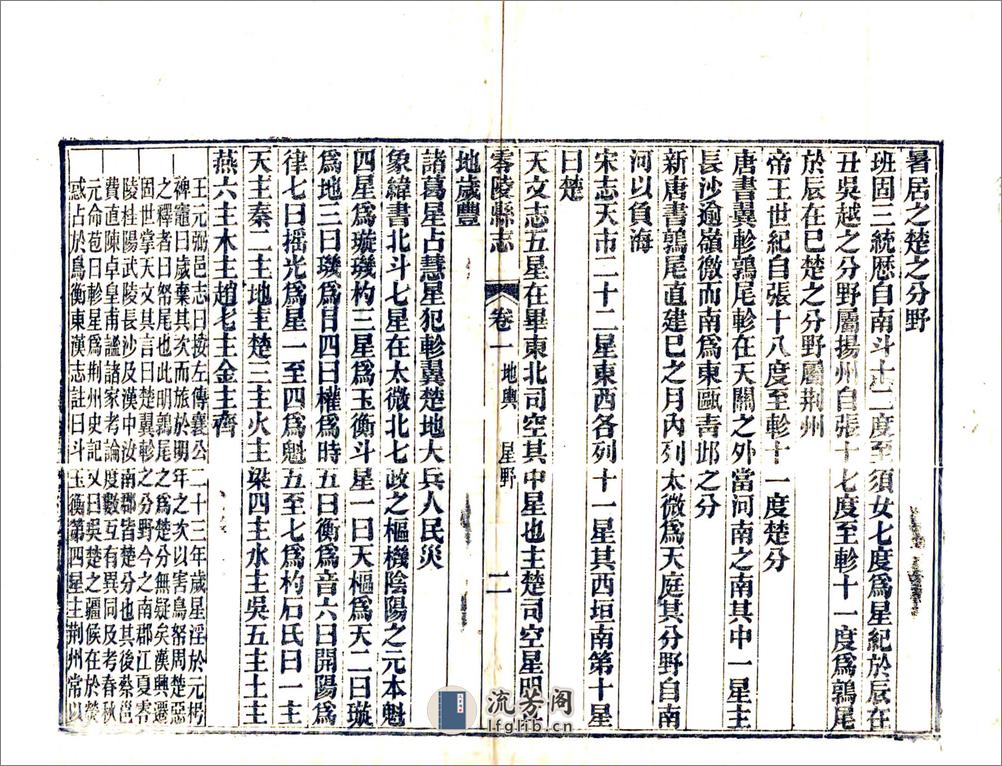 暑居之楚之分野
班固三統歷自南斗十二度至須女七度爲星紀於辰在
丑吳越之分野屬揚州自張十七度至軫十一度爲鶉尾
於辰在巳楚之分野屬荆州
帝王世紀自張十八度至軫十一度楚分
唐書翼軫鶉尾軫在天關之外當河南之南其中一星主
長沙逾嶺徼而南爲東甌靑邱之分
新唐書鶉尾直建巳之月內列太微爲天庭其分野自南
河以負海
宋志天市二十二星東西各列十一星其西垣南第十星
曰楚
天文志五星在畢東北司空其中星也主楚司空星明
零陵縣志
卷一
地輿 星野
二
地歲豐
諸葛星占慧星犯軫翼楚地大兵人民災
象緯書北斗七星在太微北七政之樞機陰陽之元本魁
四星爲璇璣杓三星爲玉衡斗星一曰天樞爲天二曰璇
爲地三曰璣爲人四曰權爲時五曰衡爲音六曰開陽爲
律七曰摇光爲星一至四爲魁五至七爲杓石氏曰一主
天主秦二主地主楚三主火主梁四主水主吳五主土主
燕六主木主趙七主金主齊
王元弼邑志曰按左傳襄公二十三年歲星淫於元枵
裨竈曰歲棄其次而旅於明年之次以害鳥帑周楚惡
之釋者曰帑尾也此明鶉尾之爲楚分無疑矣漢興遷
固世掌天文其言曰楚翼軫之分野今之南郡江夏零
陵桂陽武陵長沙及漢中汝南郡皆楚分也其後蔡邕
費直陳卓皇甫謐諸家考論度數互有異同及考春秋
元命苞曰軫星爲荆州史記又曰吳楚之疆候在於熒
惑占於鳥衡東漢志註曰斗玉衡第四星主荆州常以
流芳阁
lfglib.cn